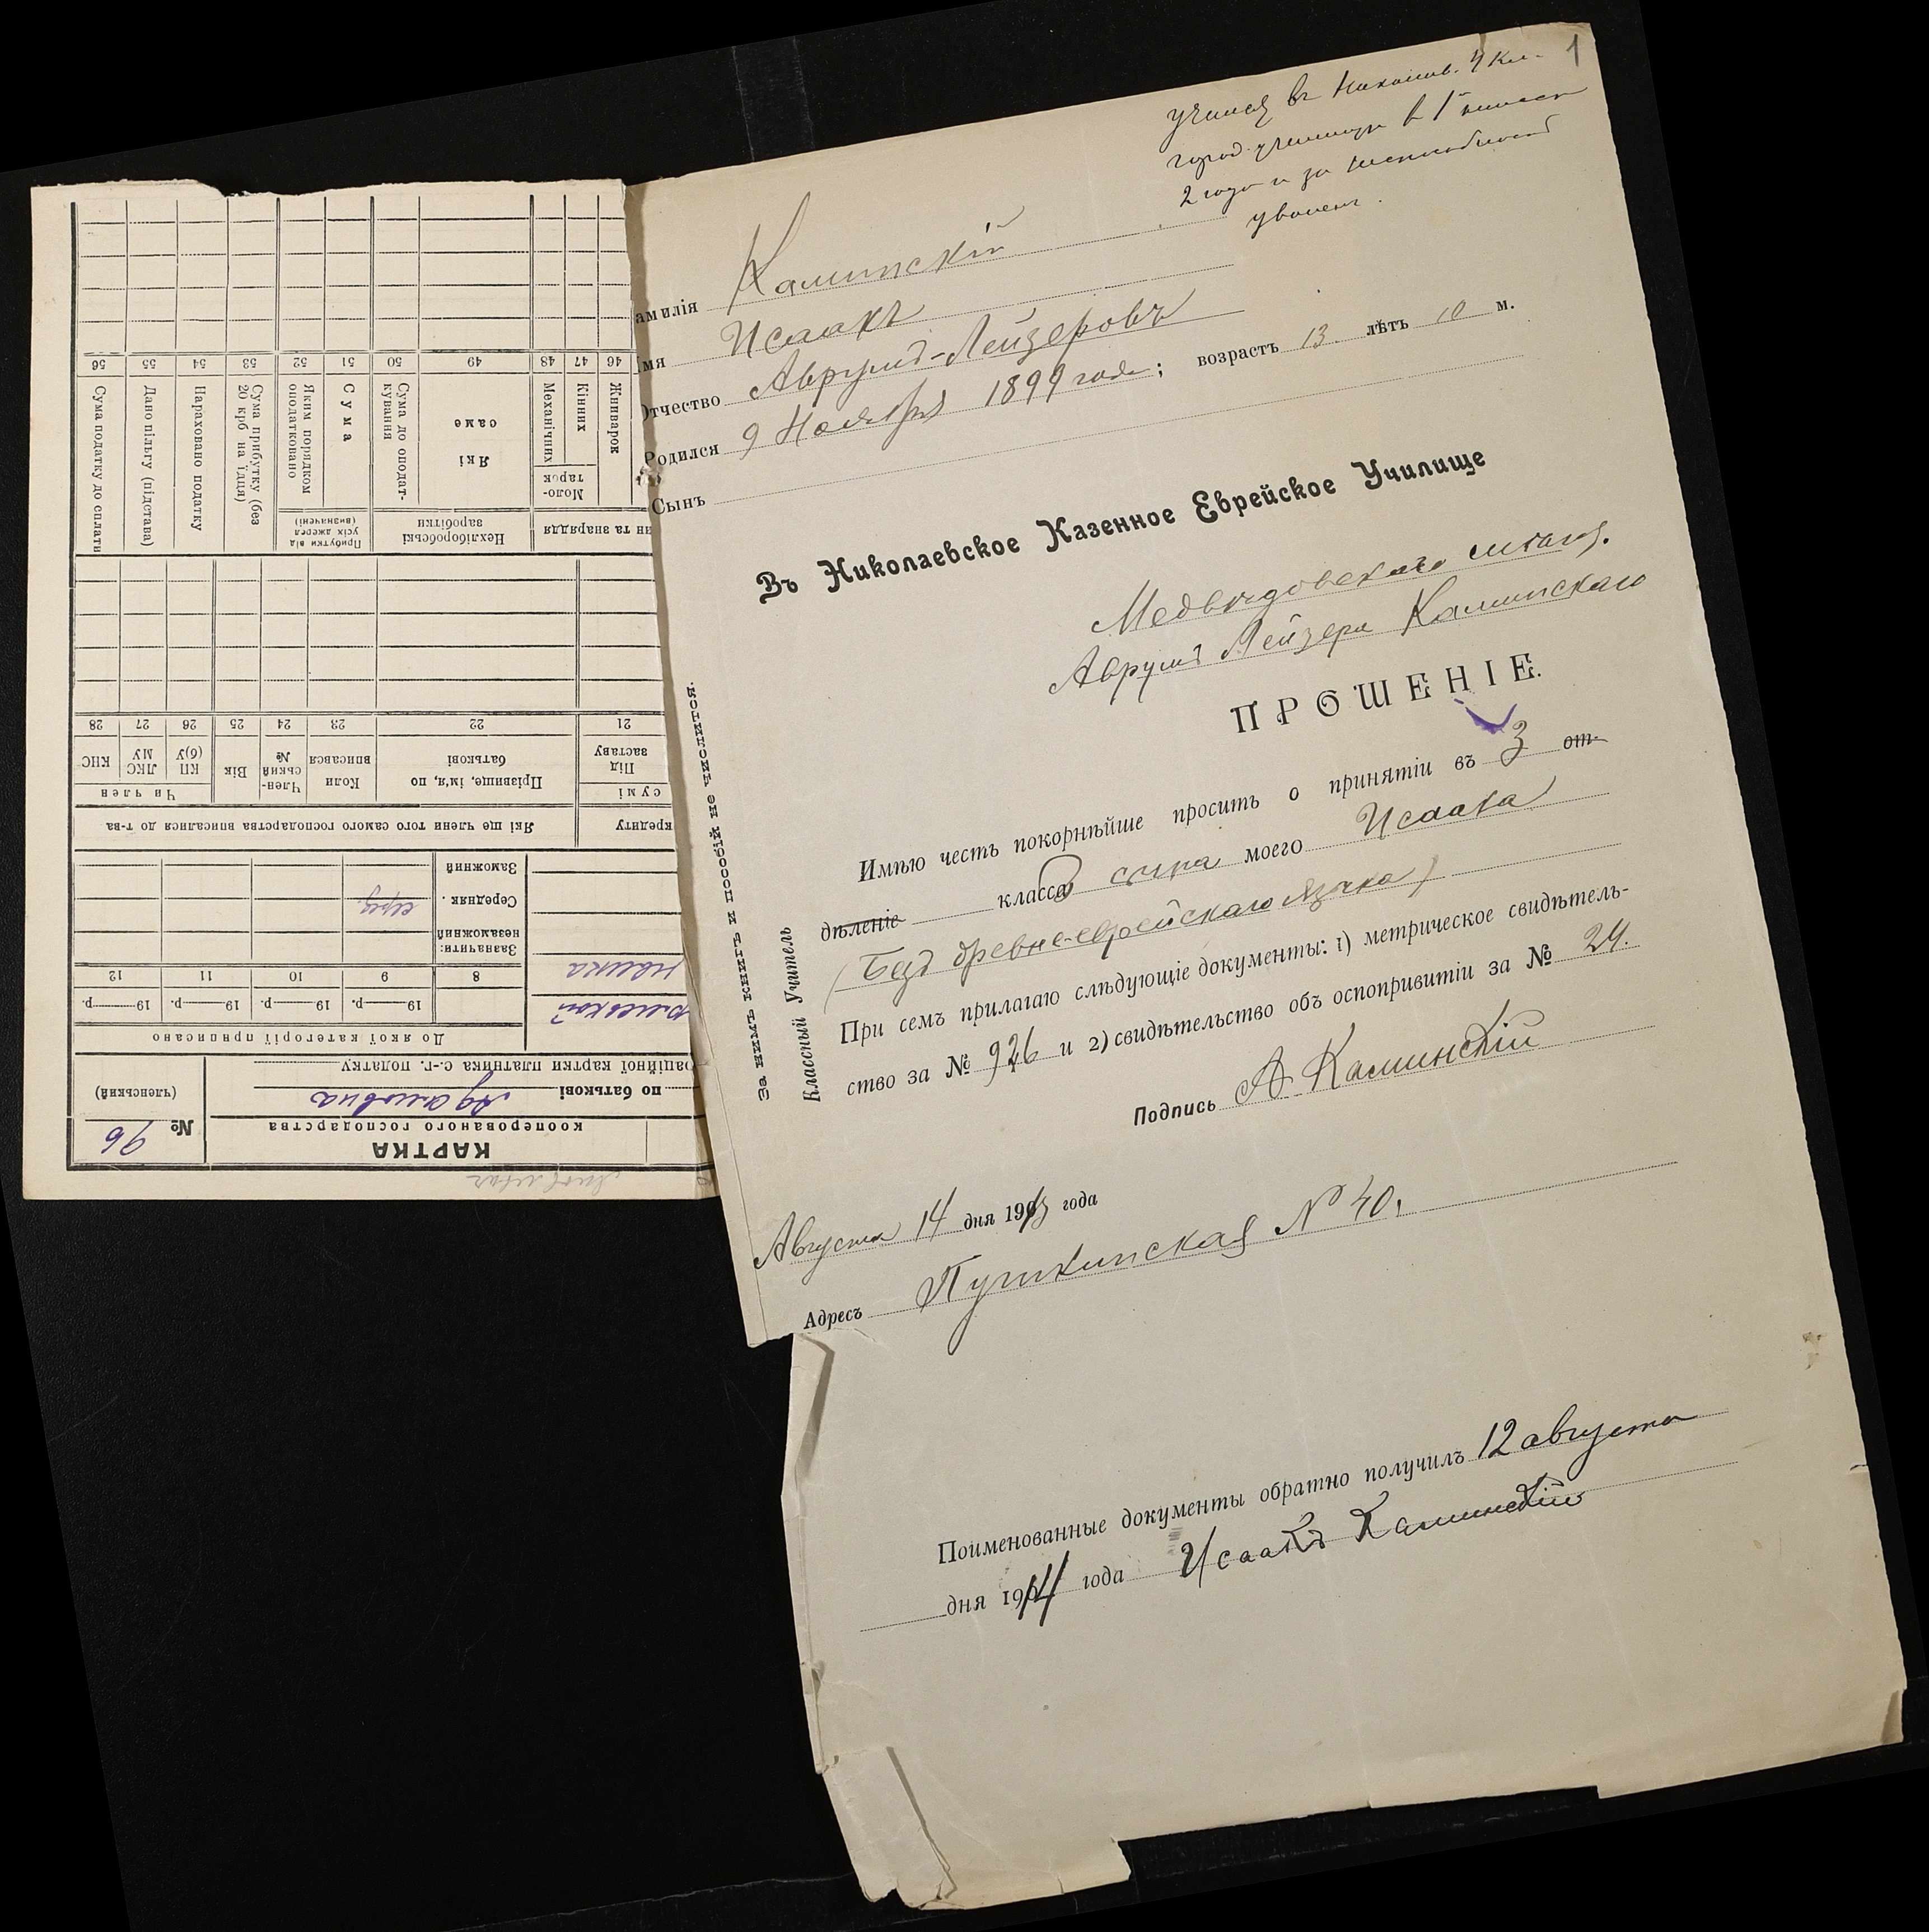 1
учился въ Николаев. 4 кл.
город. училище в 1м классе
2 года и за
уволенъ.
амилія Каминскій
Имя Исаакъ
Отчество Аврумъ-Лейзеровъ
Родился 9 Ноября 1899 года; возрастъ 13 лѣтъ 10 м.
Сынъ
Въ Николаевское Казенное Еврейское Училище
Медвѣдовскаго мѣщан.
Аврумъ Лейзера Каминскаго
ПРОШЕНІЕ.
Имѣю честь покорнѣйше просить о принятіи въ 3 от-
дѣленіе класса сына моего Исаака
(Безъ древне-еврейскаго языка)
При семъ прилагаю слѣдующіе документы: 1) метрическое свидѣтель-
ство за № 926 и 2) свидѣтельство объ оспопривитіи за № 24.
Подпись А Каминскій
Августа 14 дня 1913 года
Адресъ Пушкинская № 40.
Поименованные документы обратно получилъ 12 августа
дня 1914 года Исаакъ Каминскій
За нимъ книгъ и пособій не числится.
Классный Учитель
КАРТКА
кооперованого господарства
№ 96
(членський)
по батькові Адамовна
раційної картки платника с.-г. податку
До якої категорії приписано
19 р. 19 р. 19 р. 19 р.
8 9 10 11 12
Зазначити:
незаможній
Середняк серед.
Заможній
кредиту Які ще члени того самого господарства вписалися до т-ва
сумі
Під заставу
Прізвище, ім'я, по батькові
Коли вписався
Член-ський №
Вік
Чи член
КП (б)У
ЛКС МУ
КНС
21 22 23 24 25 26 27 28
ин та знаряддя
Жниварок
Моло-тарок
Кінних
Механічних
Нехліборобські заробітки
Які саме
Сума до оподат-кування
Прибутки від усіх джерел (визначені)
Сума
Яким порядком оподатковано
Сума прибутку (без 20 крб на їдця)
Нараховано податку
Дано пільгу (підстава)
Сума податку до сплати
46 47 48 49 50 51 52 53 54 55 56